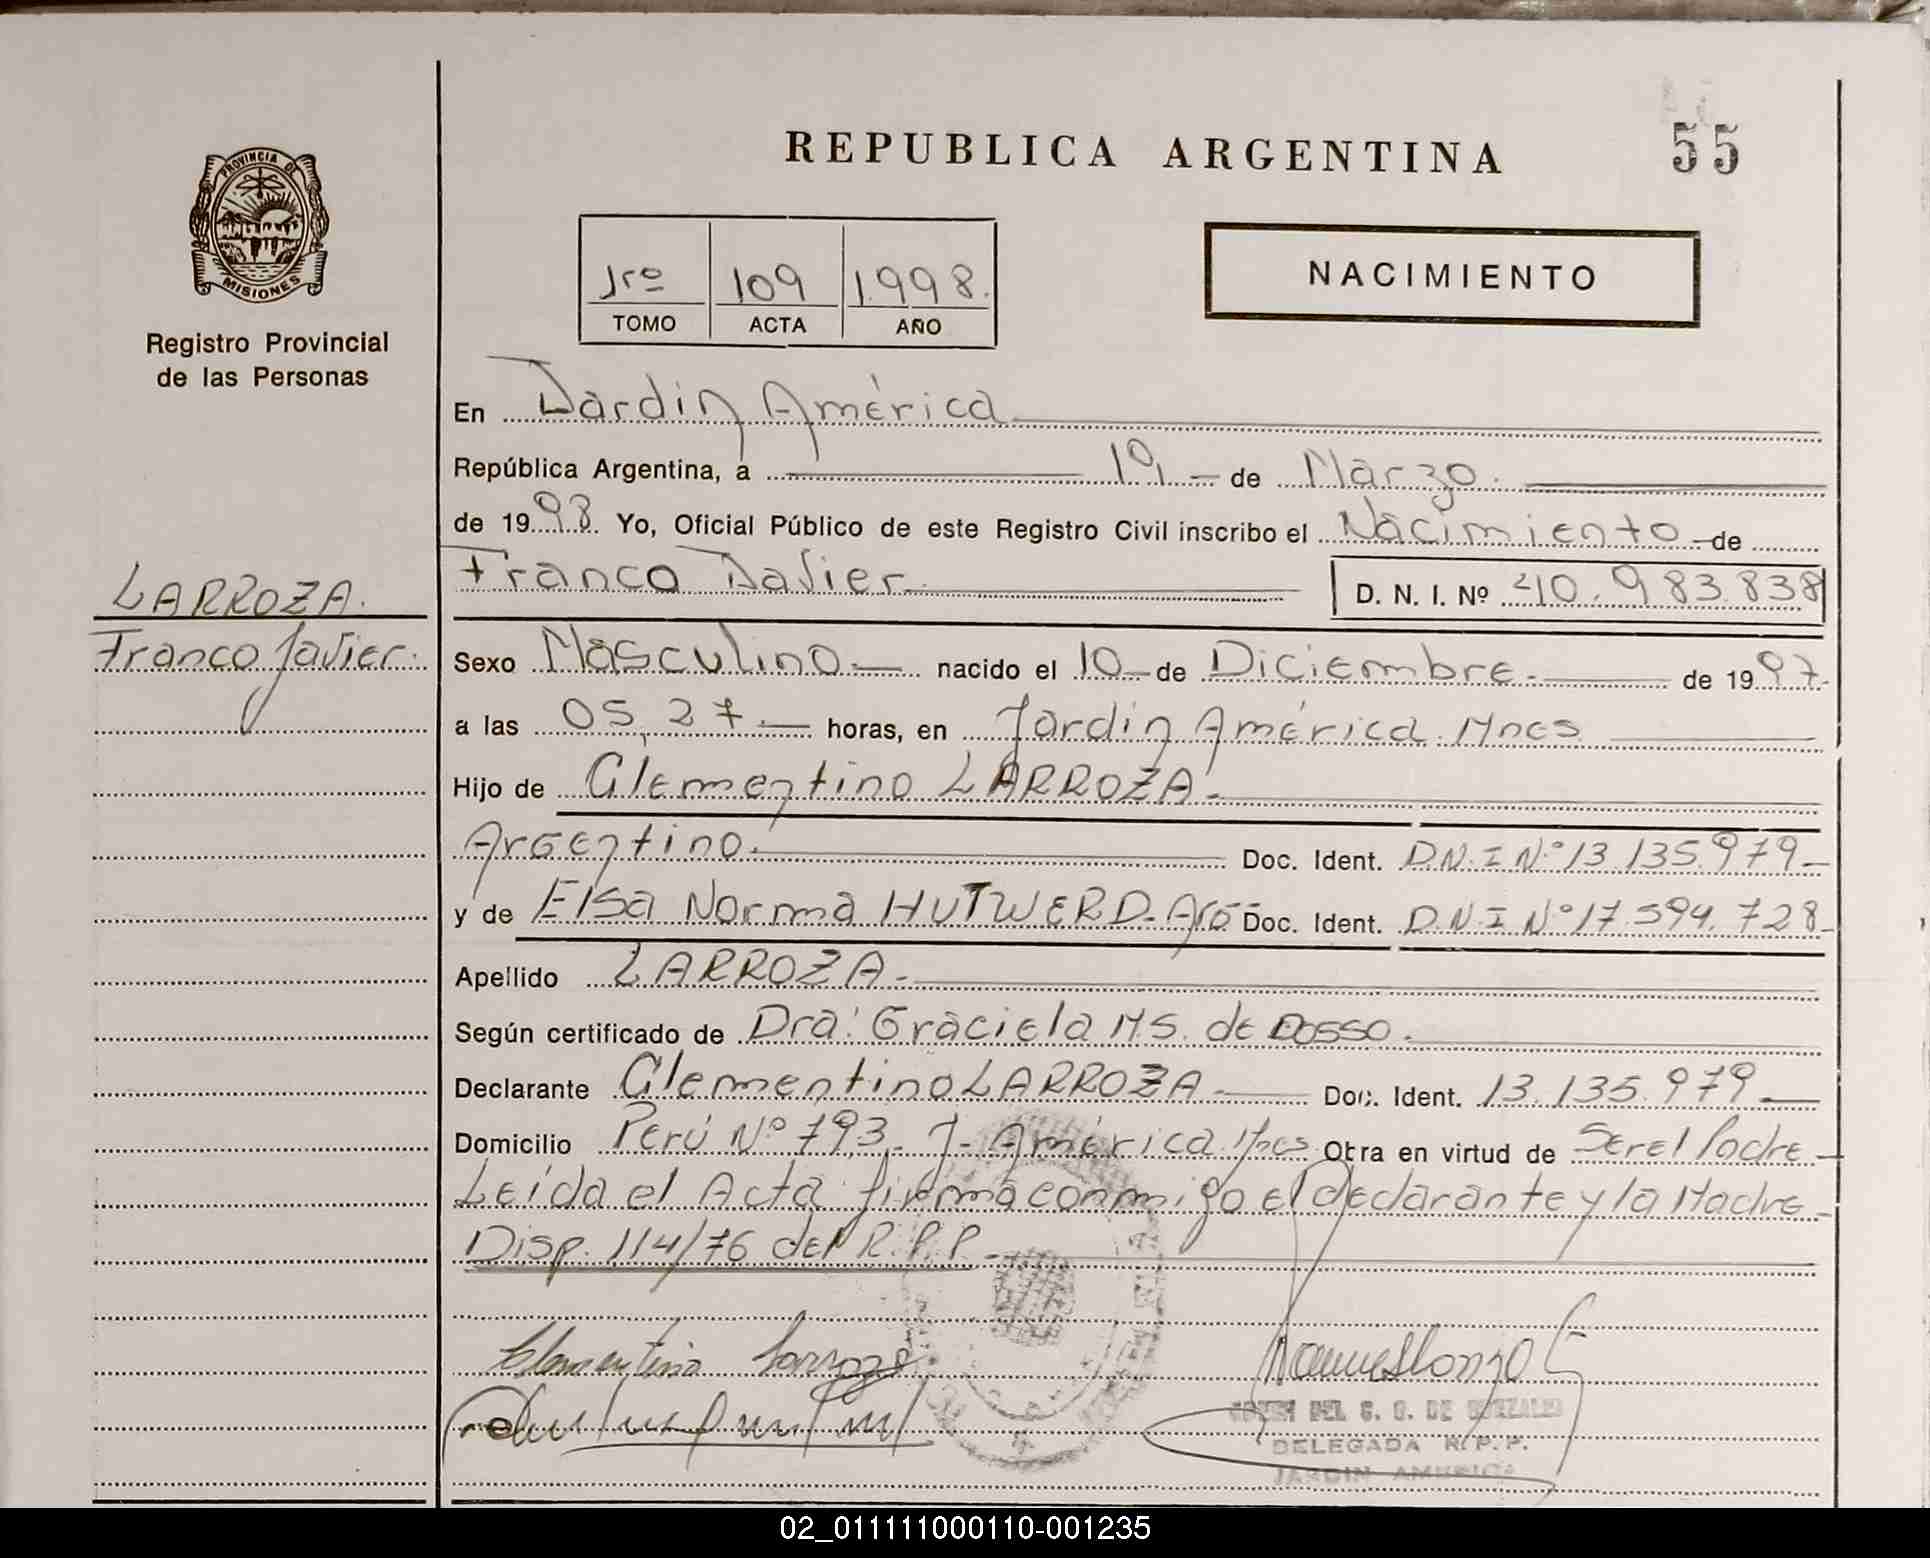 REPUBLICA ARGENTINA
55
PROVINCIA DE
MISIONES
Registro Provincial
de las Personas
1ro 109 1.998.
TOMO ACTA AÑO
NACIMIENTO
En Jardin América
República Argentina, a de Marzo.
de 1998. Yo, Oficial Público de este Registro Civil inscribo el Nacimiento de
Franco Javier D. N. I. Nº 40.983.838
LARROZA.
Franco Javier.
Sexo Masculino nacido el 10 de Diciembre. de 1997.
a las 05,27 horas, en Jardin América. Mnes
Hijo de Clementino LARROZA.
Argentino. Doc. Ident. D.N.I Nº 13.135.979
y de Elsa Norma HUTWERD. Arg. Doc. Ident. D.N.I Nº 17.594.728
Apellido LARROZA.
Según certificado de Dra: Graciela M.S. de DOSSO.
Declarante Clementino LARROZA Doc. Ident. 13.135.979
Domicilio Perú Nº 793. J. América. Mnes Obra en virtud de Ser el Padre
Leída el Acta firma conmigo el declarante y la Madre
Disp. 114/76 del R.P.P.
Clementino Larroza
DEL C. G. DE
DELEGADA R.P.P.
JARDIN AMERICA
02_011111000110-001235